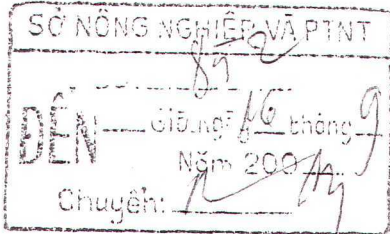 SỞ NÔNG NGHIỆP VÀ PTNT
852
ĐẾN Giờ, ngày 16 tháng 9
Năm 200
Chuyển: